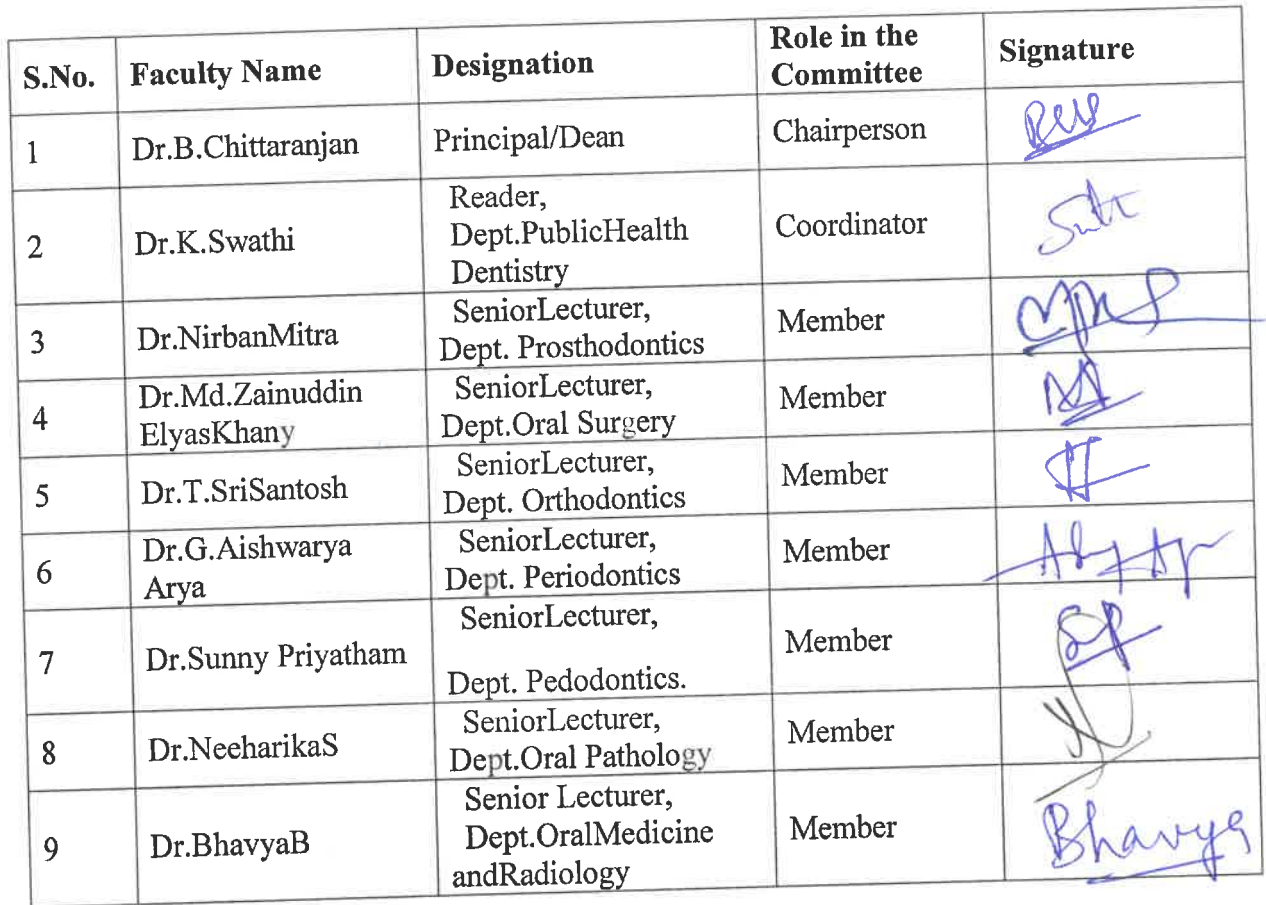 S.No. Faculty Name Designation Role in the Committee Signature
1 Dr.B.Chittaranjan Principal/Dean Chairperson
2 Dr.K.Swathi Reader,
Dept.PublicHealth
Dentistry Coordinator
3 Dr.NirbanMitra SeniorLecturer,
Dept. Prosthodontics Member
4 Dr.Md.Zainuddin
ElyasKhany SeniorLecturer,
Dept.Oral Surgery Member
5 Dr.T.SriSantosh SeniorLecturer,
Dept. Orthodontics Member
6 Dr.G.Aishwarya
Arya SeniorLecturer,
Dept. Periodontics Member
7 Dr.Sunny Priyatham SeniorLecturer,
Dept. Pedodontics. Member
8 Dr.NeeharikaS SeniorLecturer,
Dept.Oral Pathology Member
9 Dr.BhavyaB Senior Lecturer,
Dept.OralMedicine
andRadiology Member Bhavya